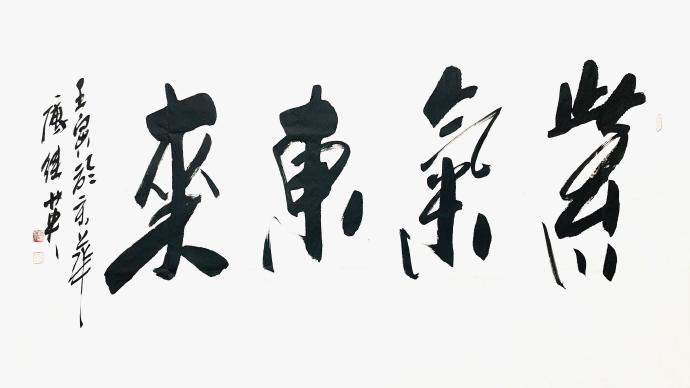 紫氣東來
壬寅於京華
唐继华